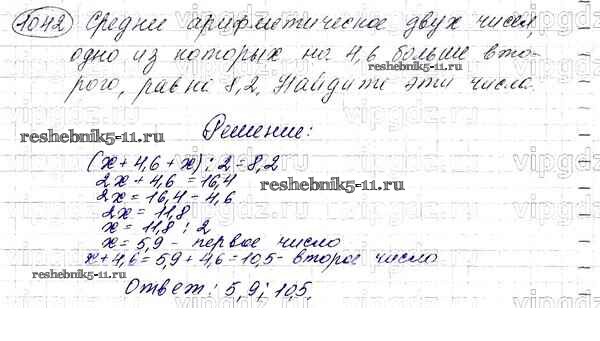 1042 Среднее арифметическое двух чисел,
одно из которых на 4,6 больше вто-
рого, равно 8,2. Найдите эти числа.
Решение:
reshebnik5-11.ru
(x + 4,6 + x) : 2 = 8,2
2x + 4,6 = 16,4
reshebnik5-11.ru
2x = 16,4 - 4,6
2x = 11,8
x = 11,8 : 2
x = 5,9 - первое число
x + 4,6 = 5,9 + 4,6 = 10,5 - второе число
reshebnik5-11.ru
Ответ: 5,9; 10,5.